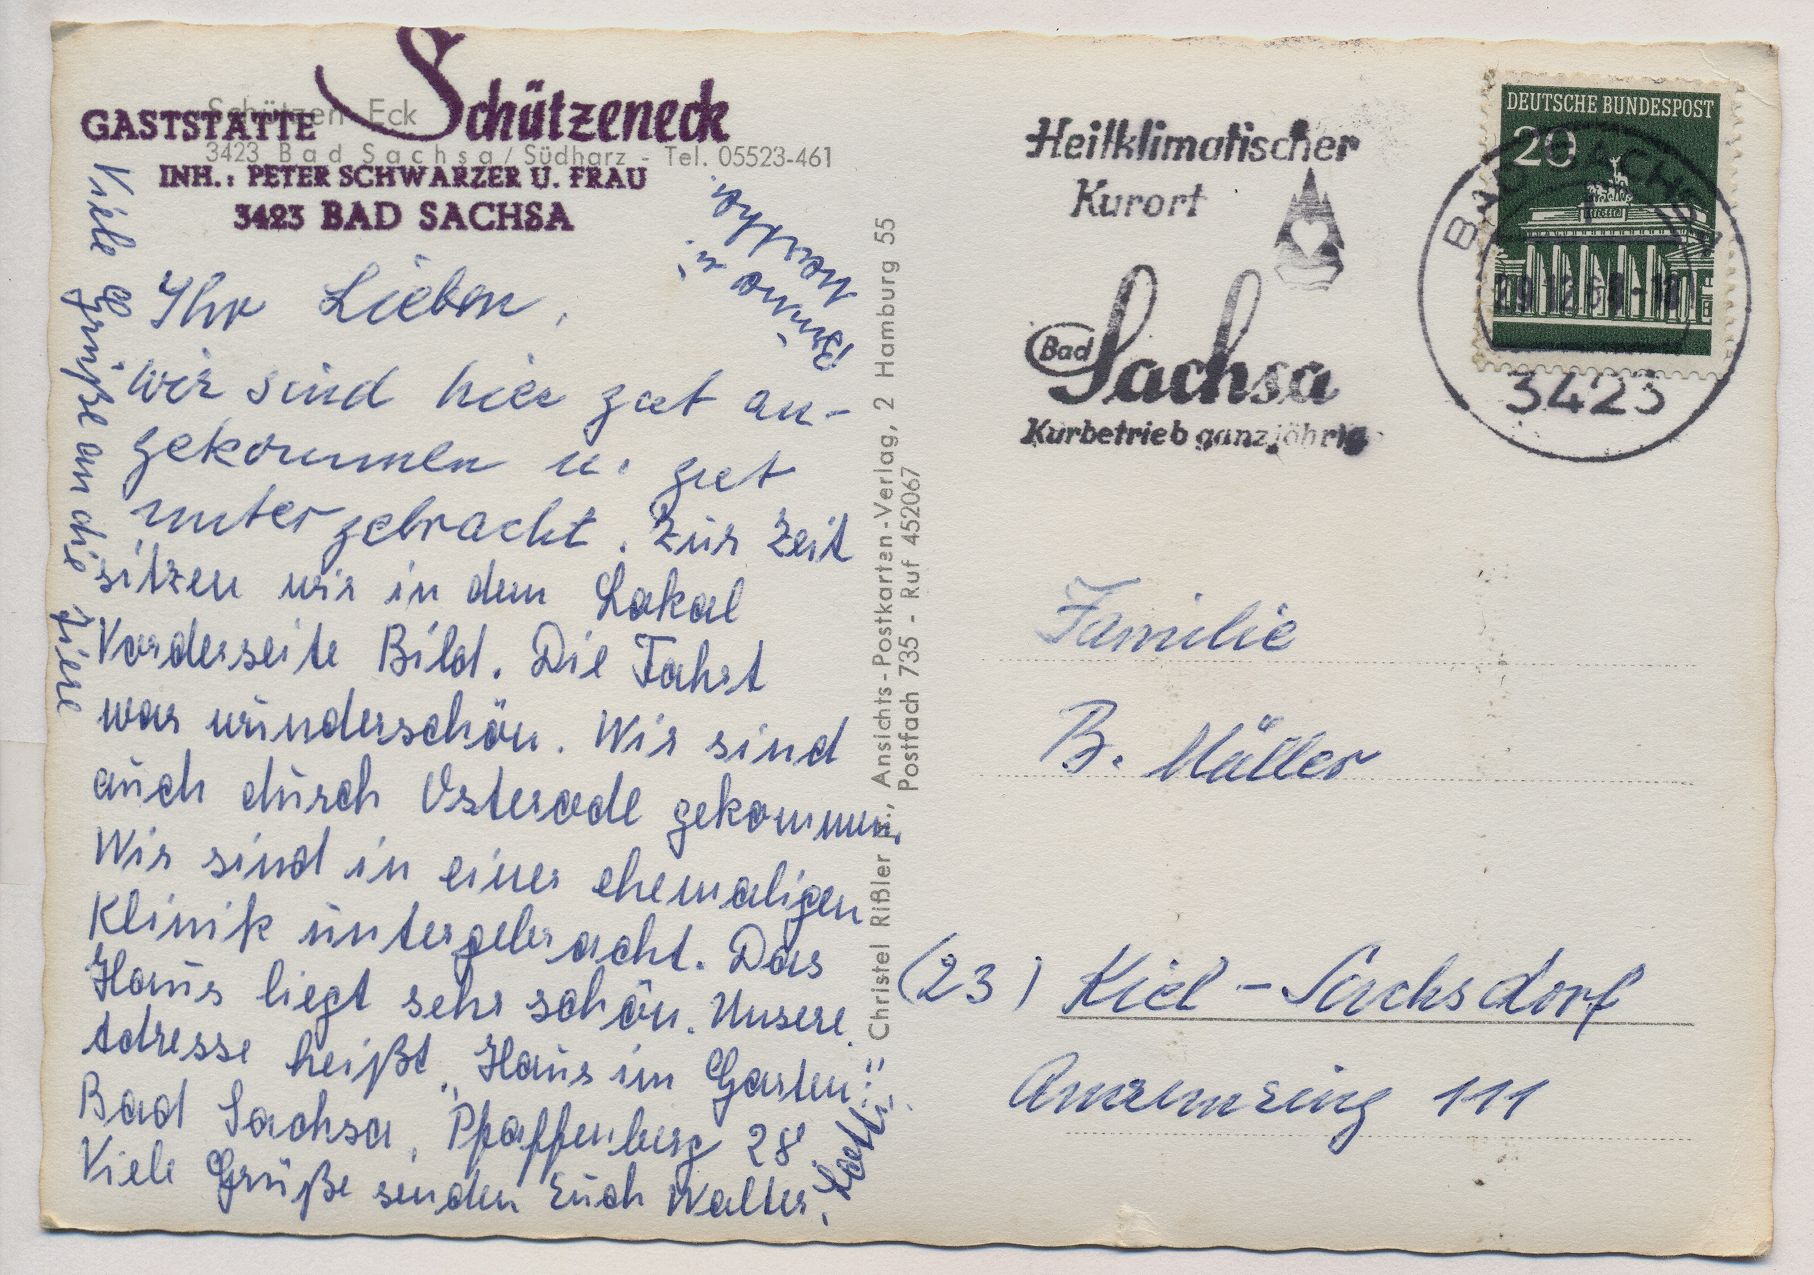 Schützen Eck
3423 Bad Sachsa/Südharz - Tel. 05523-461
GASTSTÄTTE Schützeneck
INH.: PETER SCHWARZER U. FRAU
3423 BAD SACHSA
Ihr Lieben,
wir sind hier gut an-
gekommen u. gut
untergebracht. Zur Zeit
sitzen wir in dem Lokal
Vorderseite Bild. Die Fahrt
war wunderschön. Wir sind
auch durch Osterode gekommen.
Wir sind in einer ehemaligen
Klinik untergebracht. Das
Haus liegt sehr schön. Unsere
Adresse heißt „Haus im Garten"
Bad Sachsa, Pfaffenberg 28
Viele Grüße senden Euch Walter,
Viele Grüße an die Tiere
Christel Rißler, Ansichts-Postkarten-Verlag, 2 Hamburg 55
Postfach 735 - Ruf 452067
Heilklimatischer
Kurort
Bad Sachsa
Kurbetrieb ganzjährig
DEUTSCHE BUNDESPOST
20
BAD SACHSA
3423
Familie
B. Müller
(23) Kiel-Sachsdorf
Amrumring 111